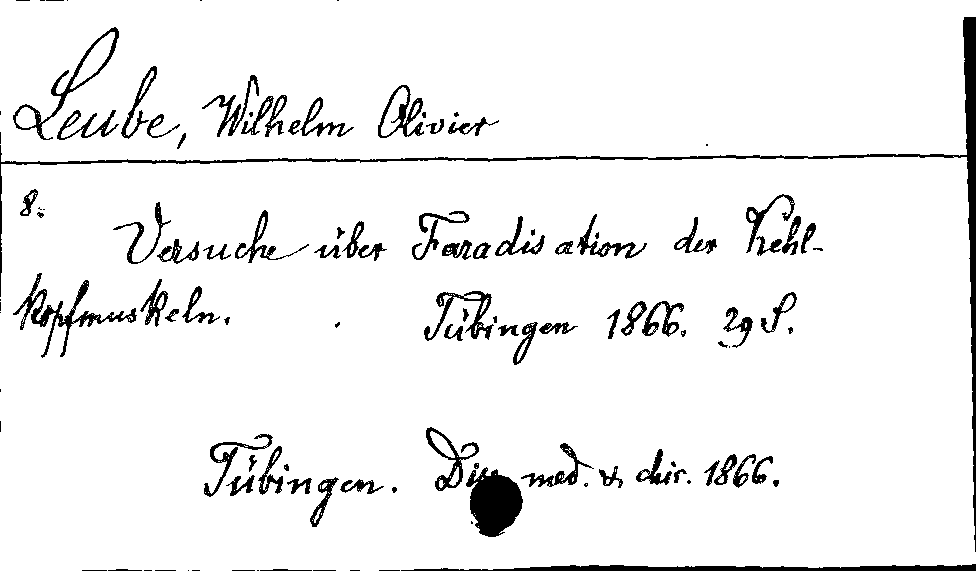 Leube, Wilhelm Olivier
8.
Versuche über Faradisation der Kehl-
kopfmuskeln. Tübingen 1866. 29 S.
Tübingen. Diss. med. & chir. 1866.